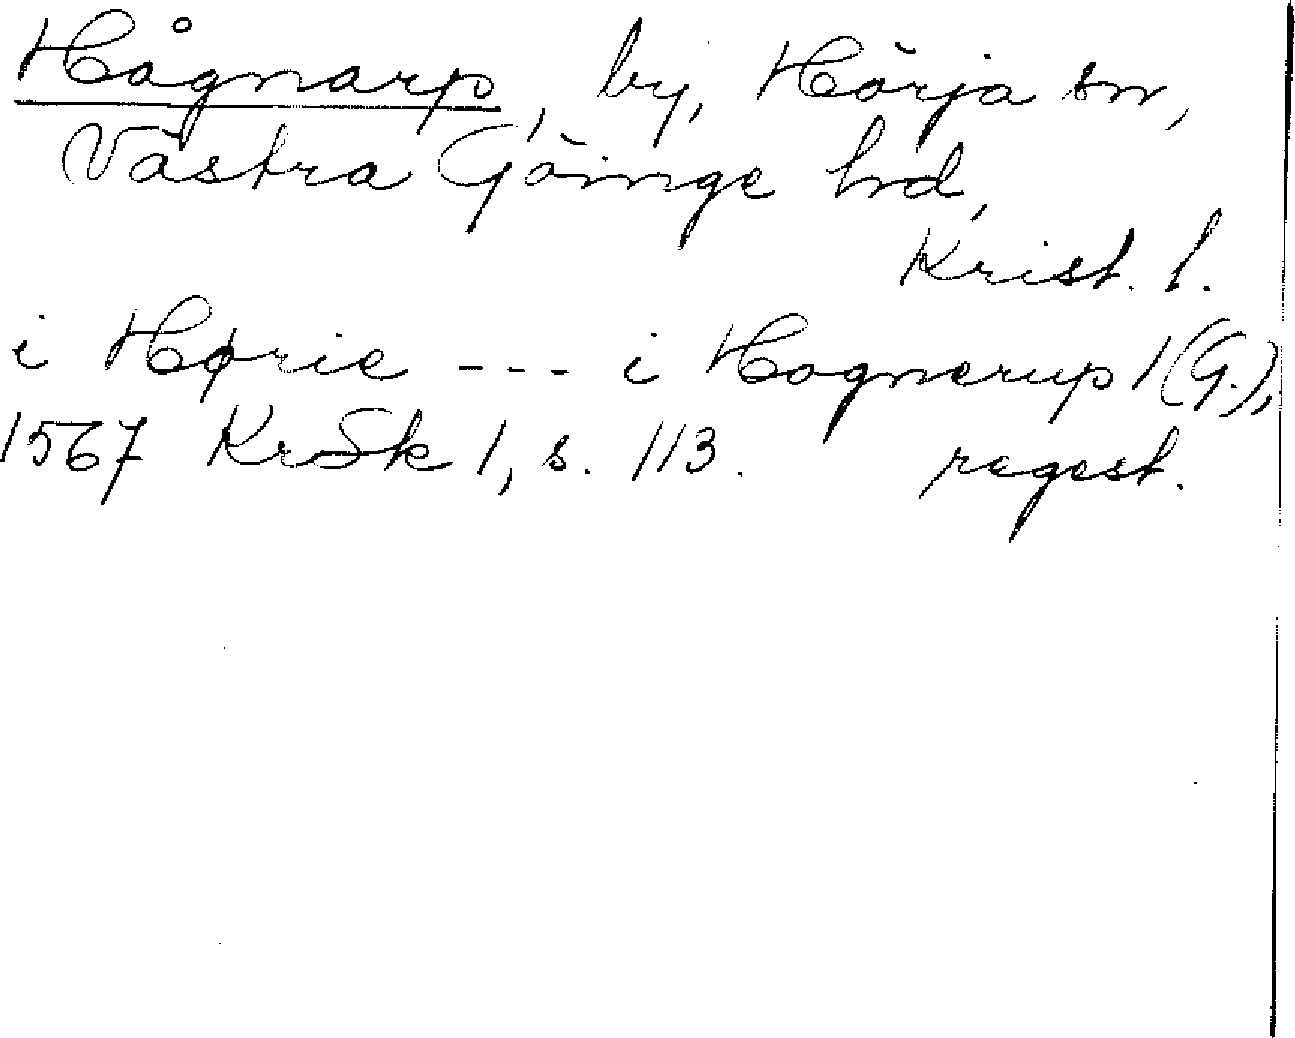 Hågnarp, by, Hörja sn,
Västra Göinge hd,
Krist. l.
i Hørie --- i Hognerup 1 (G.),
1567 KrSk 1, s. 113. regest.